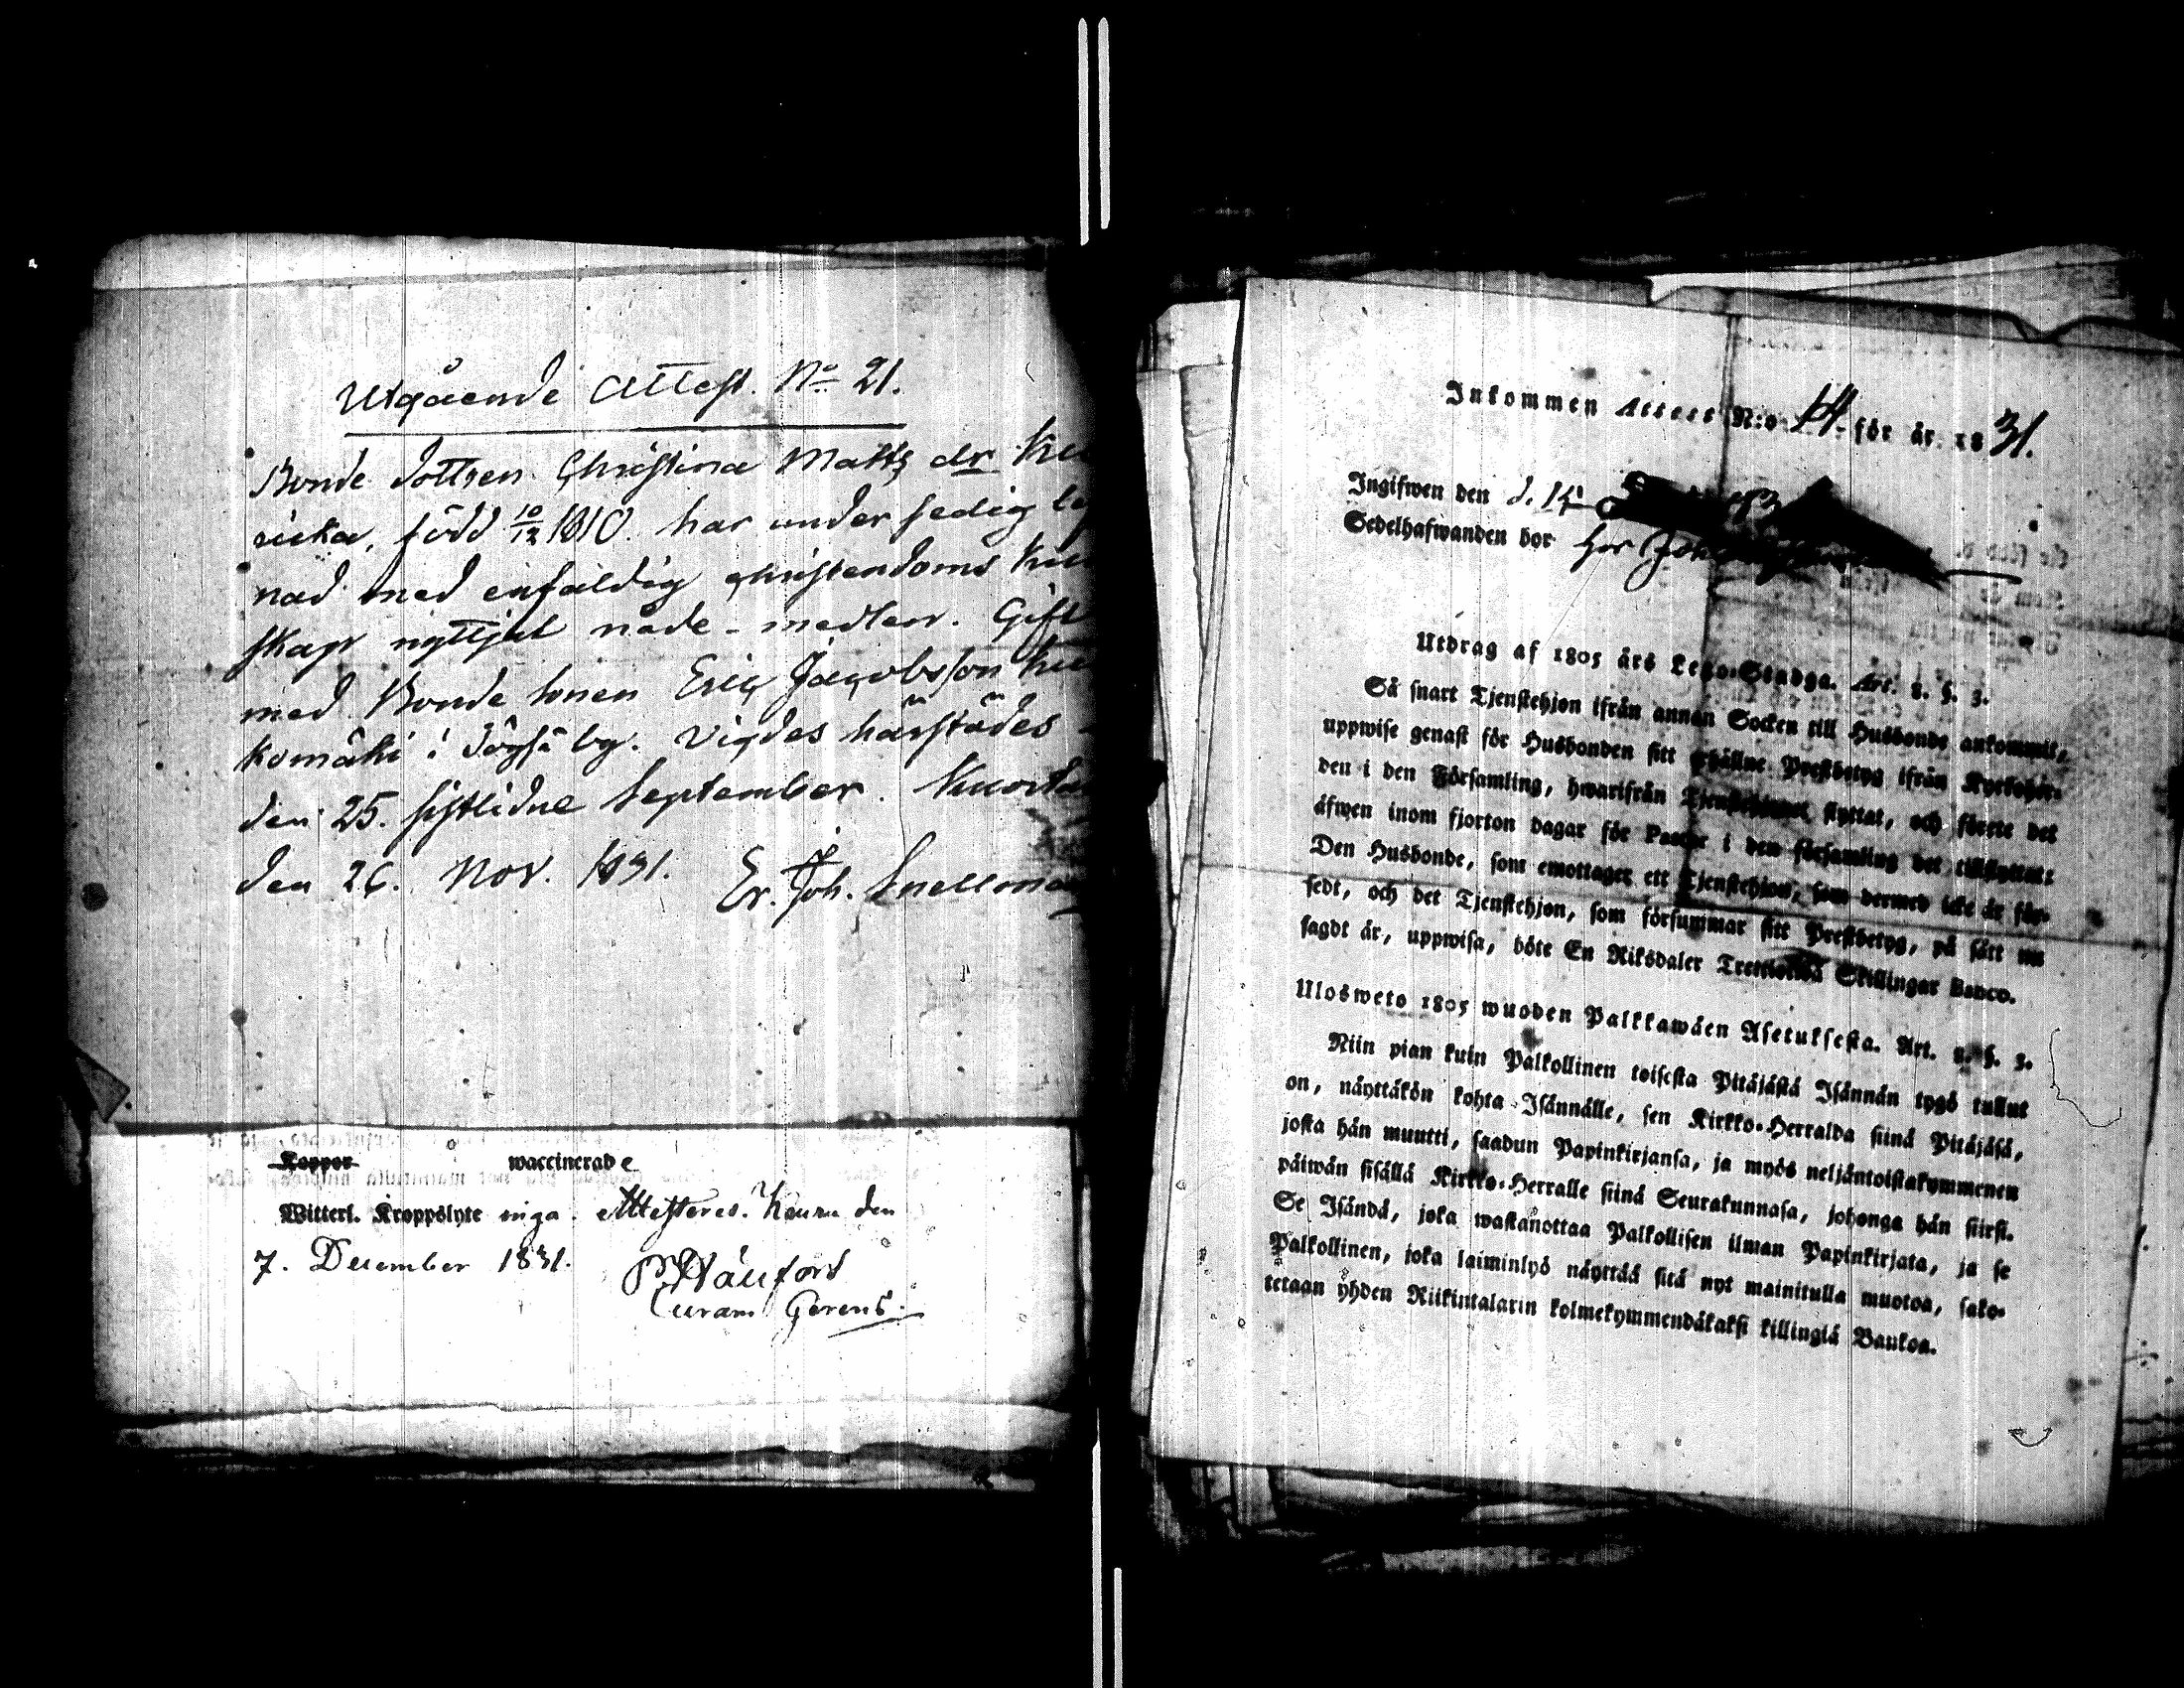 Utgående Attest. No 21.
Bonde dottren Christina Matts dr
född 10/12 1810. har under sedig
nad med enfaldig christendoms
skap nyttjat nåde-medlen. Gift
med Bonde sonen Eric Jacobsson
komäki i Töysä by. Vigdes härstädes
den 25. sistlidne September.
den 26. Nov. 1831. Er. Joh. Snellman
Koppor waccinerade
Witterl. Kroppslyte inga. Attesteres. Keuru den
7. December 1831.
Curam Gerens.
Inkommen Attest N:o 14. för år 1831.
Ingifwen den d. 15
Sedelhafwanden bor hos
Utdrag af 1805 års Lego-Stadga. Art. 2. §. 3.
Så snart Tjenstehjon ifrån annan Socken till Husbonde ankommit,
uppwise genast för Husbonden sitt erhållne Prestbetyg ifrån Kyrkoher-
den i den Församling, hwarifrån Tjenstehjonet flyttat, och förete det
äfwen inom fjorton dagar för Pastor i den församling det tillflyttat:
Den Husbonde, som emottager ett Tjenstehjon, som dermed icke är för-
sedt, och det Tjenstehjon, som försummar sitt Prestbetyg, på sätt nu
sagdt är, uppwisa, böte En Riksdaler Trettiotwå Skillingar Banco.
Ulosweto 1805 wuoden Palkkawäen Asetuksesta. Art. 2. §. 3.
Niin pian kuin Palkollinen toisesta Pitäjästä Isännän tygö tullut
on, näyttäkön kohta Isännälle, sen Kirkko-Herralda siinä Pitäjäsä,
josta hän muutti, saadun Papinkirjansa, ja myös neljäntoistakymmenen
päiwän sisällä Kirkko-Herralle siinä Seurakunnasa, johonga hän siirsi.
Se Isändä, joka wastanottaa Palkollisen ilman Papinkirjata, ja se
Palkollinen, joka laiminlyö näyttää sitä nyt mainitulla muotoa, sako-
tetaan yhden Riikintalarin kolmekymmendäkaksi killingiä Bankoa.